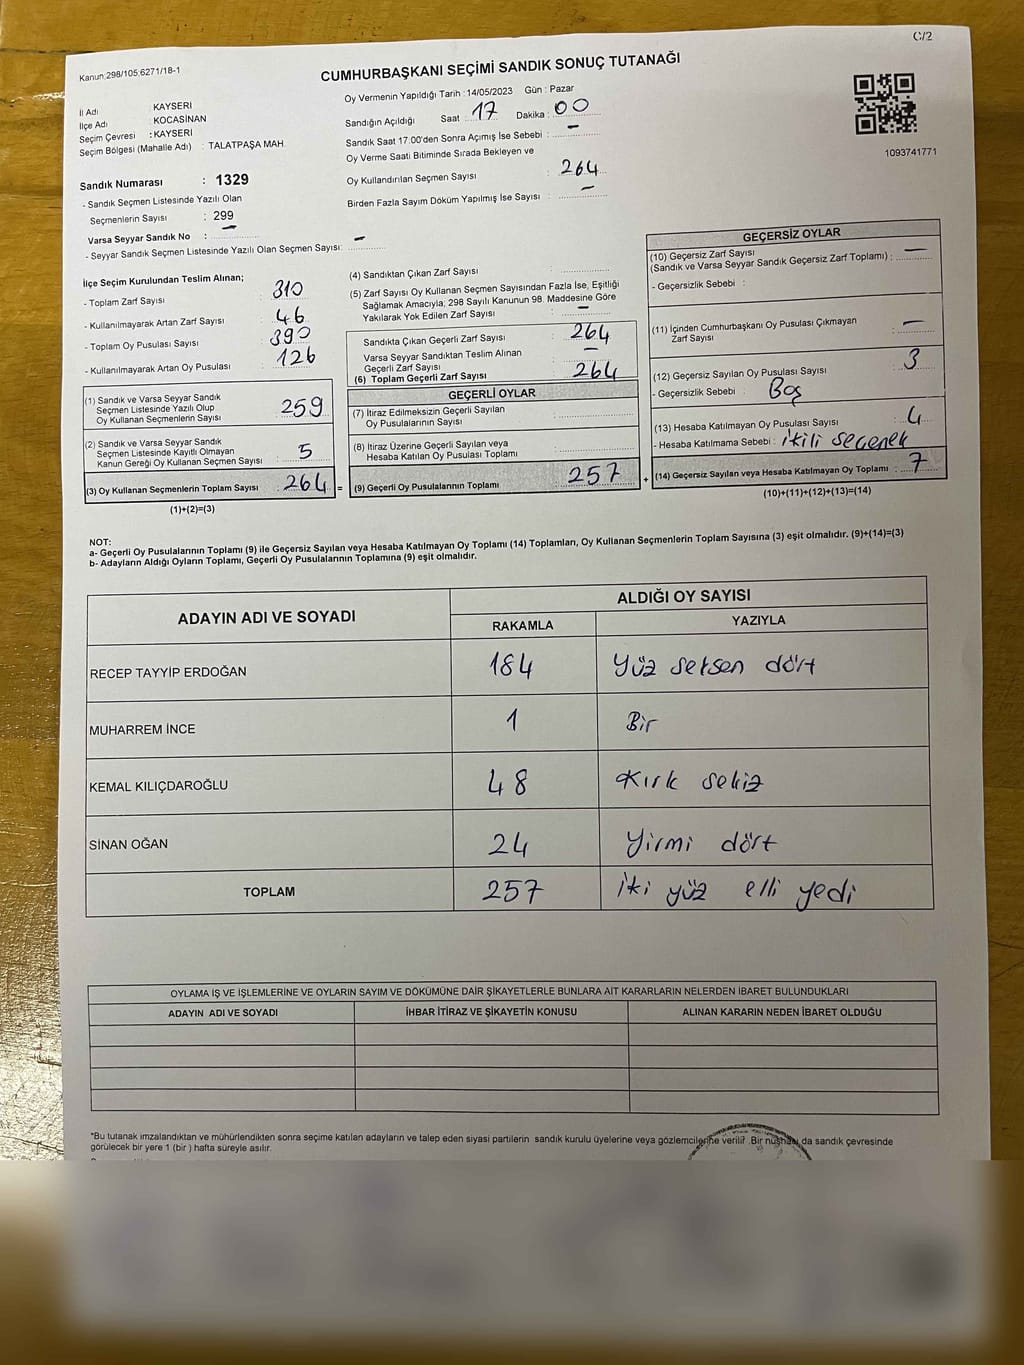 C/2
Kanun:298/105:6271/18-1
CUMHURBAŞKANI SEÇİMİ SANDIK SONUÇ TUTANAĞI
İl Adı : KAYSERİ
İlçe Adı : KOCASİNAN
Seçim Çevresi : KAYSERİ
Seçim Bölgesi (Mahalle Adı) : TALATPAŞA MAH.
Sandık Numarası : 1329
- Sandık Seçmen Listesinde Yazılı Olan
Seçmenlerin Sayısı : 299
Varsa Seyyar Sandık No : -
- Seyyar Sandık Seçmen Listesinde Yazılı Olan Seçmen Sayısı: -
Oy Vermenin Yapıldığı Tarih : 14/05/2023 Gün : Pazar
Sandığın Açıldığı Saat : 17 Dakika : 00
Sandık Saat 17:00'den Sonra Açımış İse Sebebi : -
Oy Verme Saati Bitiminde Sırada Bekleyen ve
Oy Kullandırılan Seçmen Sayısı : 264
Birden Fazla Sayım Döküm Yapılmış İse Sayısı : -
1093741771
İlçe Seçim Kurulundan Teslim Alınan;
- Toplam Zarf Sayısı : 310
- Kullanılmayarak Artan Zarf Sayısı : 46
- Toplam Oy Pusulası Sayısı : 390
- Kullanılmayarak Artan Oy Pusulası : 126
(1) Sandık ve Varsa Seyyar Sandık
Seçmen Listesinde Yazılı Olup
Oy Kullanan Seçmenlerin Sayısı : 259
(2) Sandık ve Varsa Seyyar Sandık
Seçmen Listesinde Kayıtlı Olmayan
Kanun Gereği Oy Kullanan Seçmen Sayısı : 5
(3) Oy Kullanan Seçmenlerin Toplam Sayısı : 264 =
(1)+(2)=(3)
(4) Sandıktan Çıkan Zarf Sayısı :
(5) Zarf Sayısı Oy Kullanan Seçmen Sayısından Fazla İse, Eşitliği
Sağlamak Amacıyla; 298 Sayılı Kanunun 98. Maddesine Göre
Yakılarak Yok Edilen Zarf Sayısı : -
Sandıkta Çıkan Geçerli Zarf Sayısı : 264
Varsa Seyyar Sandıktan Teslim Alınan
Geçerli Zarf Sayısı : -
(6) Toplam Geçerli Zarf Sayısı : 264
GEÇERLİ OYLAR
(7) İtiraz Edilmeksizin Geçerli Sayılan
Oy Pusulalarının Sayısı :
(8) İtiraz Üzerine Geçerli Sayılan veya
Hesaba Katılan Oy Pusulası Toplamı :
(9) Geçerli Oy Pusulalarının Toplamı : 257 +
GEÇERSİZ OYLAR
(10) Geçersiz Zarf Sayısı
(Sandık ve Varsa Seyyar Sandık Geçersiz Zarf Toplamı) : -
- Geçersizlik Sebebi :
(11) İçinden Cumhurbaşkanı Oy Pusulası Çıkmayan
Zarf Sayısı : -
(12) Geçersiz Sayılan Oy Pusulası Sayısı : 3
- Geçersizlik Sebebi : Boş
(13) Hesaba Katılmayan Oy Pusulası Sayısı : 4
- Hesaba Katılmama Sebebi : ikili seçenek
(14) Geçersiz Sayılan veya Hesaba Katılmayan Oy Toplamı : 7
(10)+(11)+(12)+(13)=(14)
NOT:
a- Geçerli Oy Pusulalarının Toplamı (9) ile Geçersiz Sayılan veya Hesaba Katılmayan Oy Toplamı (14) Toplamları, Oy Kullanan Seçmenlerin Toplam Sayısına (3) eşit olmalıdır. (9)+(14)=(3)
b- Adayların Aldığı Oyların Toplamı, Geçerli Oy Pusulalarının Toplamına (9) eşit olmalıdır.
ADAYIN ADI VE SOYADI ALDIĞI OY SAYISI
RAKAMLA YAZIYLA
RECEP TAYYİP ERDOĞAN 184 Yüz seksen dört
MUHARREM İNCE 1 Bir
KEMAL KILIÇDAROĞLU 48 Kırk sekiz
SİNAN OĞAN 24 Yirmi dört
TOPLAM 257 iki yüz elli yedi
OYLAMA İŞ VE İŞLEMLERİNE VE OYLARIN SAYIM VE DÖKÜMÜNE DAİR ŞİKAYETLERLE BUNLARA AİT KARARLARIN NELERDEN İBARET BULUNDUKLARI
ADAYIN ADI VE SOYADI İHBAR İTİRAZ VE ŞİKAYETİN KONUSU ALINAN KARARIN NEDEN İBARET OLDUĞU
*Bu tutanak imzalandıktan ve mühürlendikten sonra seçime katılan adayların ve talep eden siyasi partilerin sandık kurulu üyelerine veya gözlemcilerine verilir. Bir nüshası da sandık çevresinde
görülecek bir yere 1 (bir) hafta süreyle asılır.